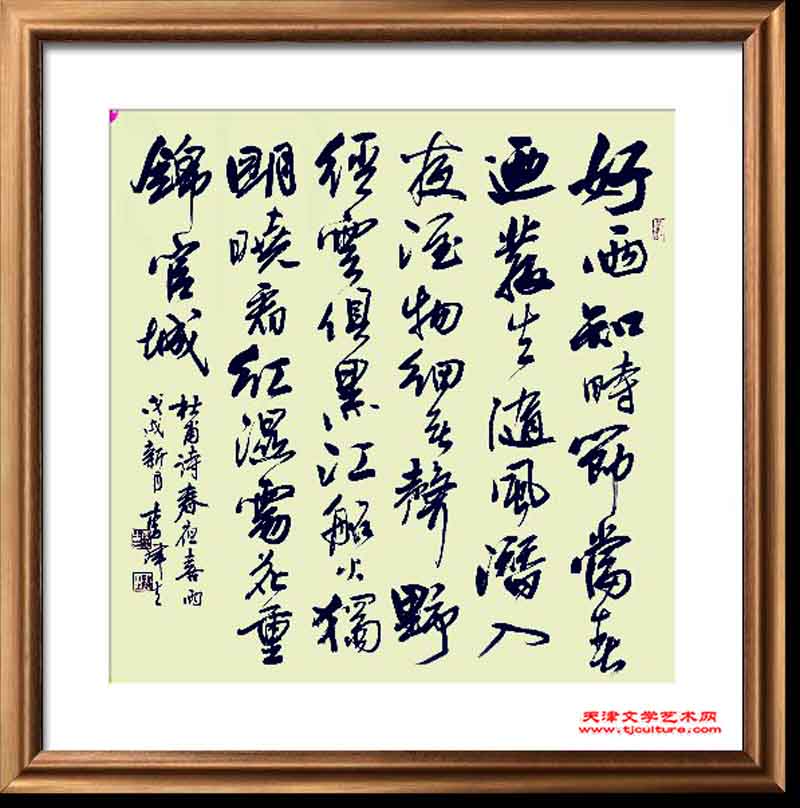 好雨知時節當春
迺發生隨風潛入
夜潤物細无聲野
徑雲俱黑江船火獨
明曉看紅濕處花重
錦官城
杜甫詩春夜喜雨
戊戌新月李津生
天津文学艺术网
www.tjculture.com